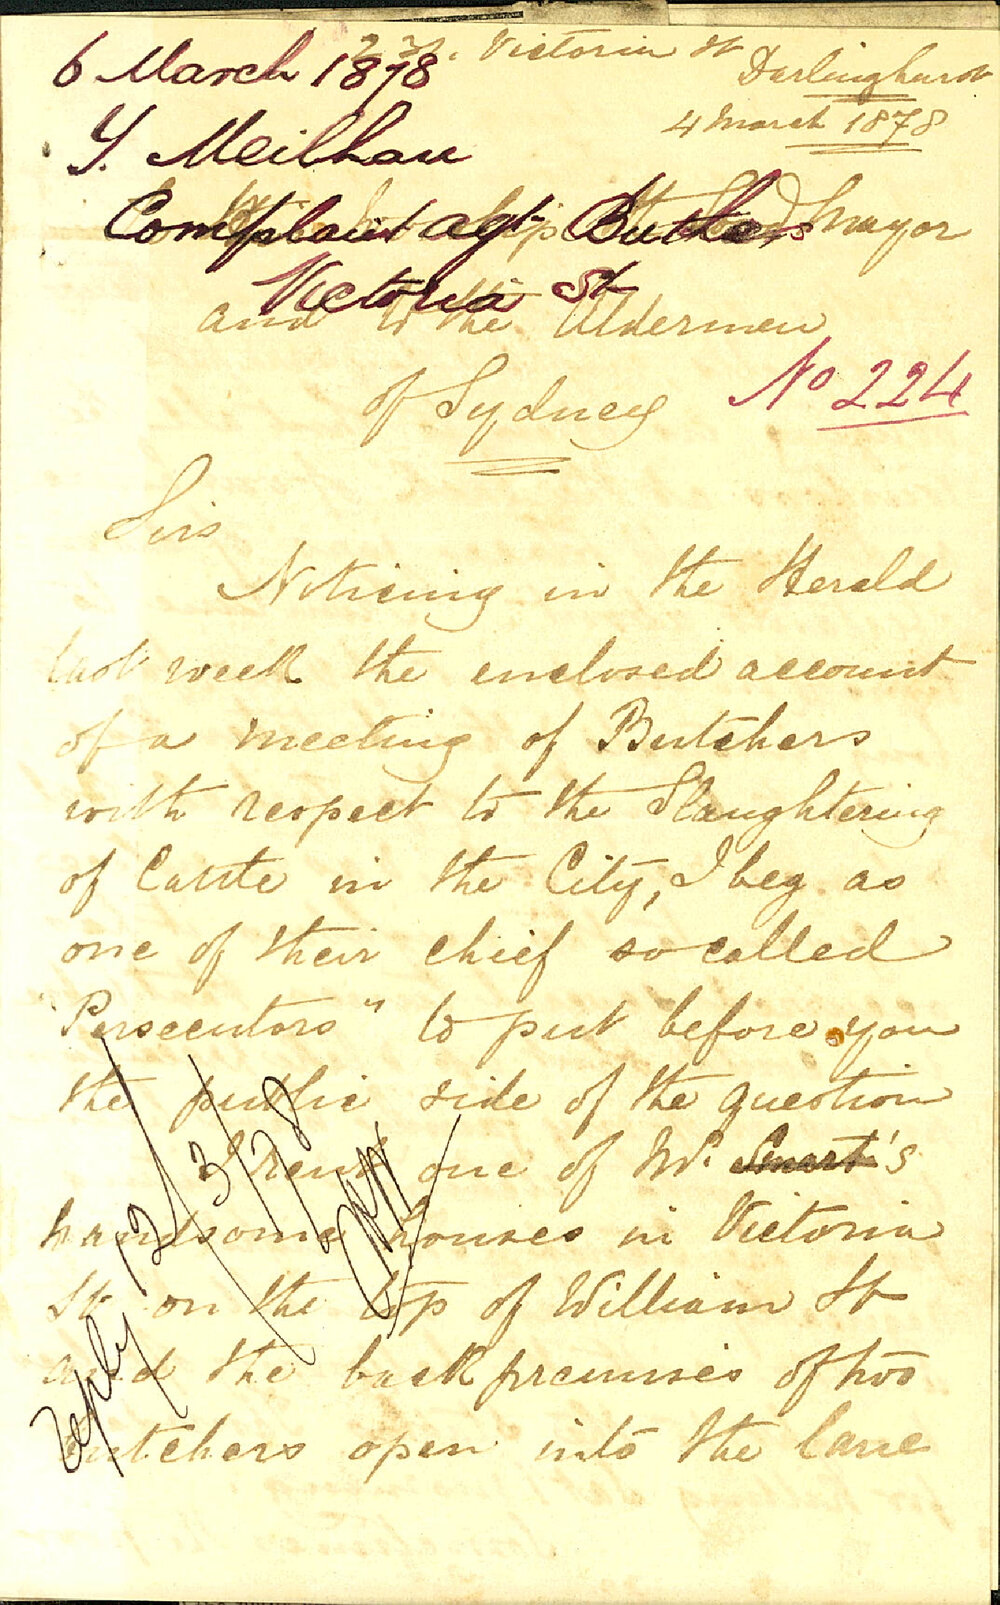 6 March 1878
Y. Meilhan
Complaint agt Butchers
Victoria St
Victoria St
Darlinghurst
4 March 1878
Mayor
and to the Aldermen
of Sydney
No 224
Sirs
Noticing in the Herald
last week the enclosed account
of a meeting of Butchers
with respect to the Slaughtering
of Cattle in the City, I beg as
one of their chief so called
"Persecutors" to put before you
the public side of the question
I rent one of Mr. Smart's
handsome houses in Victoria
St on the top of William St
and the back premises of two
butchers open into the lane
reply 12/3/78